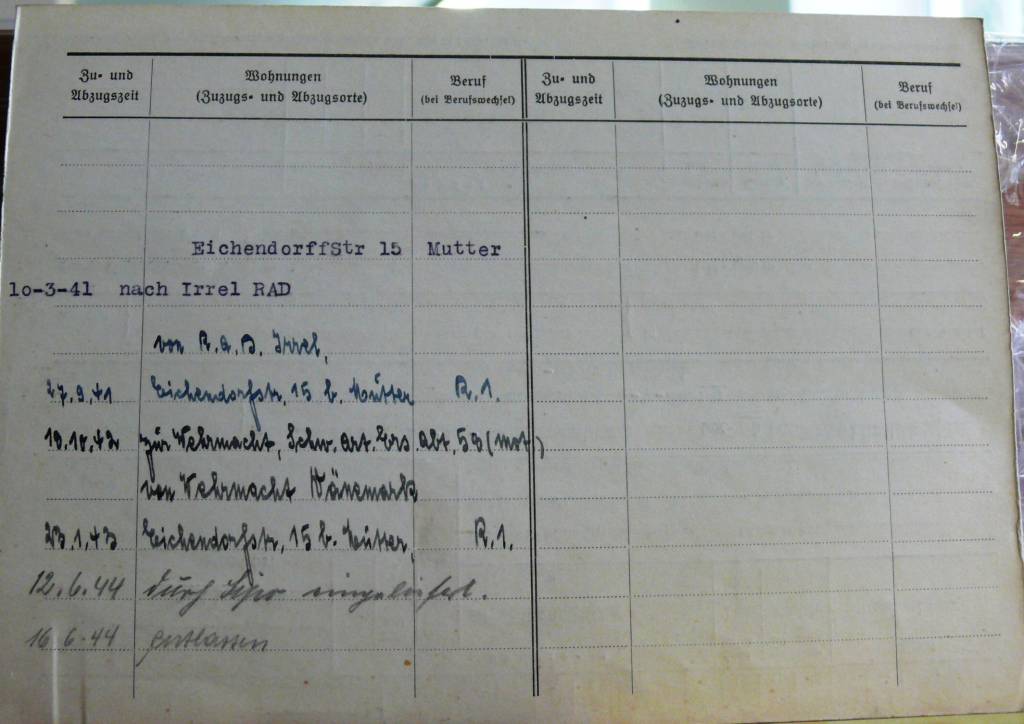 Zu- und Abzugszeit
Wohnungen (Zuzugs- und Abzugsorte)
Beruf (bei Berufswechsel)
Zu- und Abzugszeit
Wohnungen (Zuzugs- und Abzugsorte)
Beruf (bei Berufswechsel)
EichendorffStr 15 Mutter
1o-3-41 nach Irrel RAD
von R.a.D. Irrel,
27.9.41 Eichendorfstr. 15 b. Mutter R.1.
zur Wehrmacht, Schw. Art. Ers. Abt. (mot.)
von Wehrmacht Dänemark
23.1.43 Eichendorfstr. 15 b. Mutter, R.1.
12.6.44 durch eingeliefert.
16.6.44 entlassen